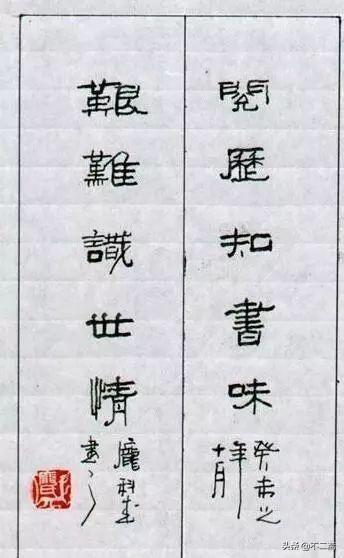 閱歷知書味
癸未之
年
十月
艱難識世情
龐
書
头条@不二斋